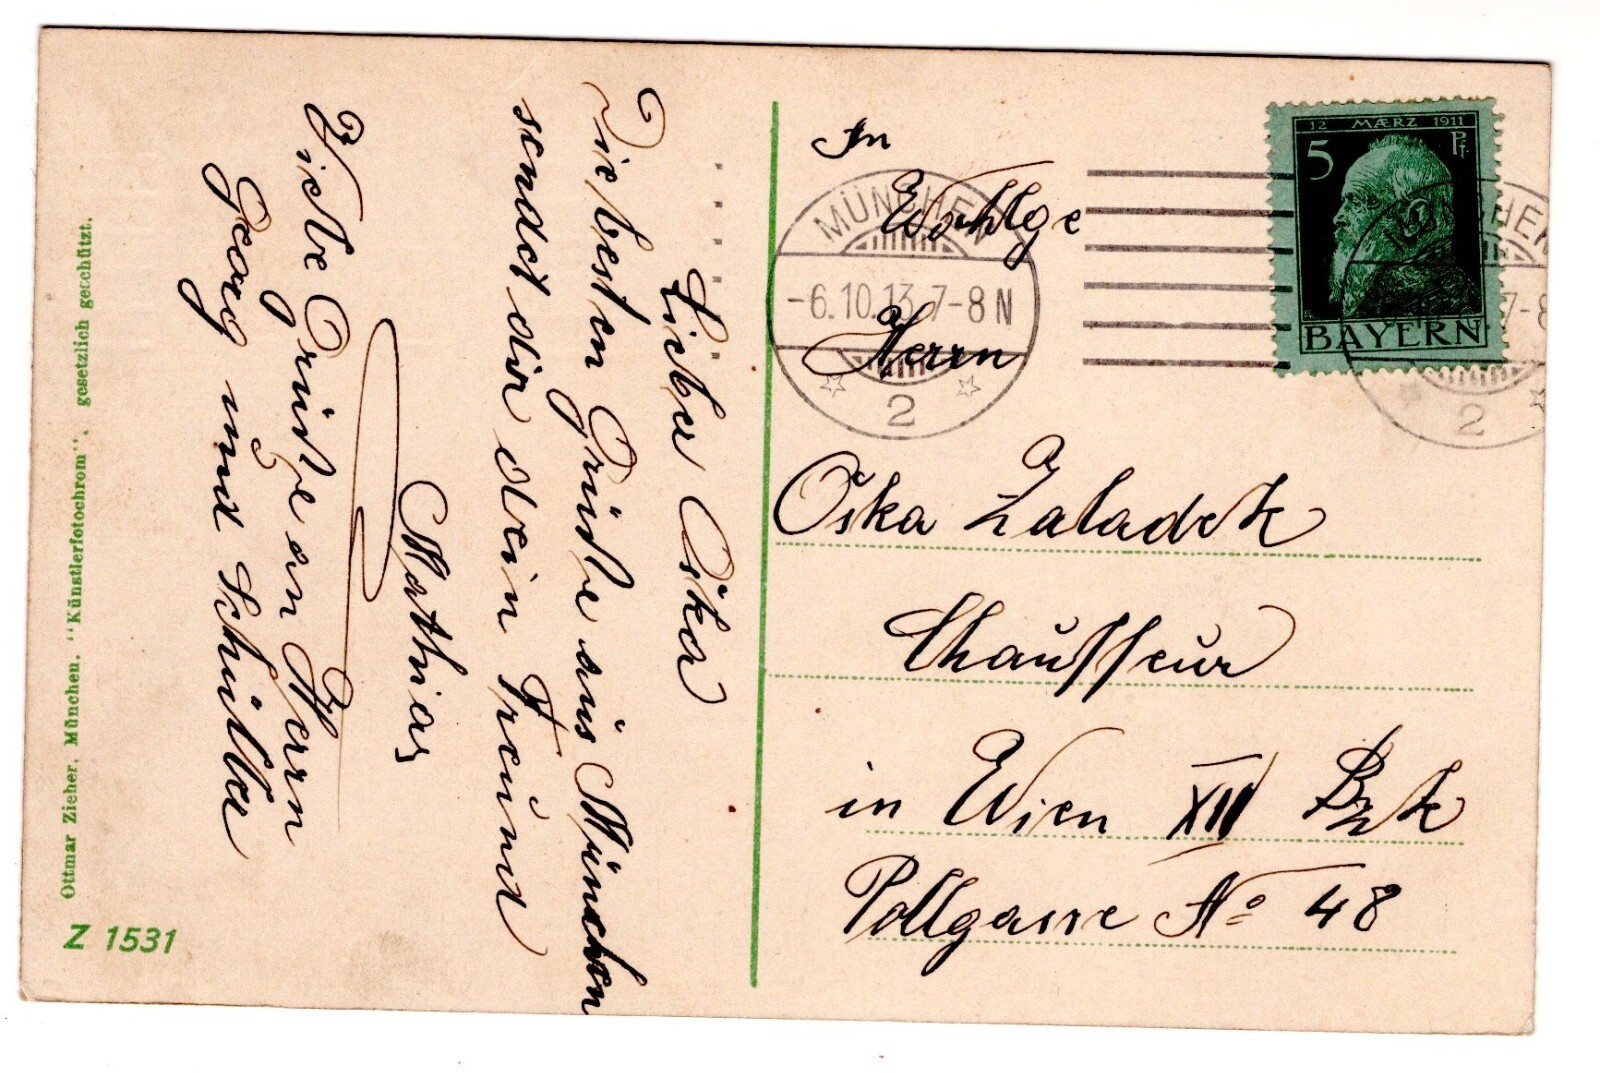 Lieber Oska
Die besten Grüße aus München
sendet dir dein Freund
Mathias
Viele Grüße an Hern
Georg und Schüller
Ottmar Zieher, München. "Künstlerfotochrom". gesetzlich geschützt.
Z 1531
12 MÆRZ 1911
5 Pf.
BAYERN
MÜNCHEN
-6.10.13.7-8N
2
MÜNCHEN
7-8
2
An
Wohlge
Herrn
Oska Zaladek
Chauffeur
in Wien XII Bzk
Pollgasse No 48